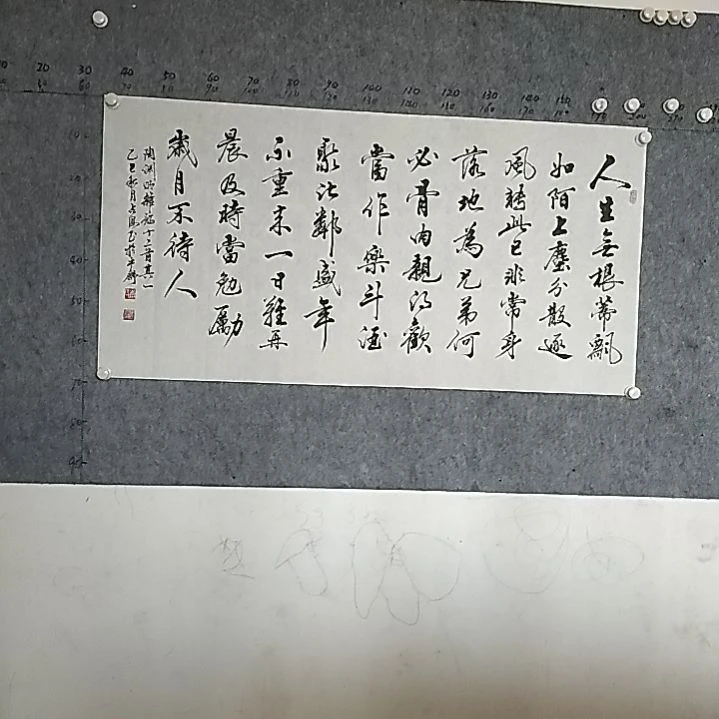 20 30 40 50 60 70 80 90 100 110 120 130 140 150
人生無根蒂飄
如陌上塵分散逐
風轉此已非常身
落地為兄弟何
必骨肉親得歡
當作樂斗酒
聚比鄰盛年
不重來一日難再
晨及時當勉勵
歲月不待人
陶淵明雜詩十二首其一
乙巳秋月